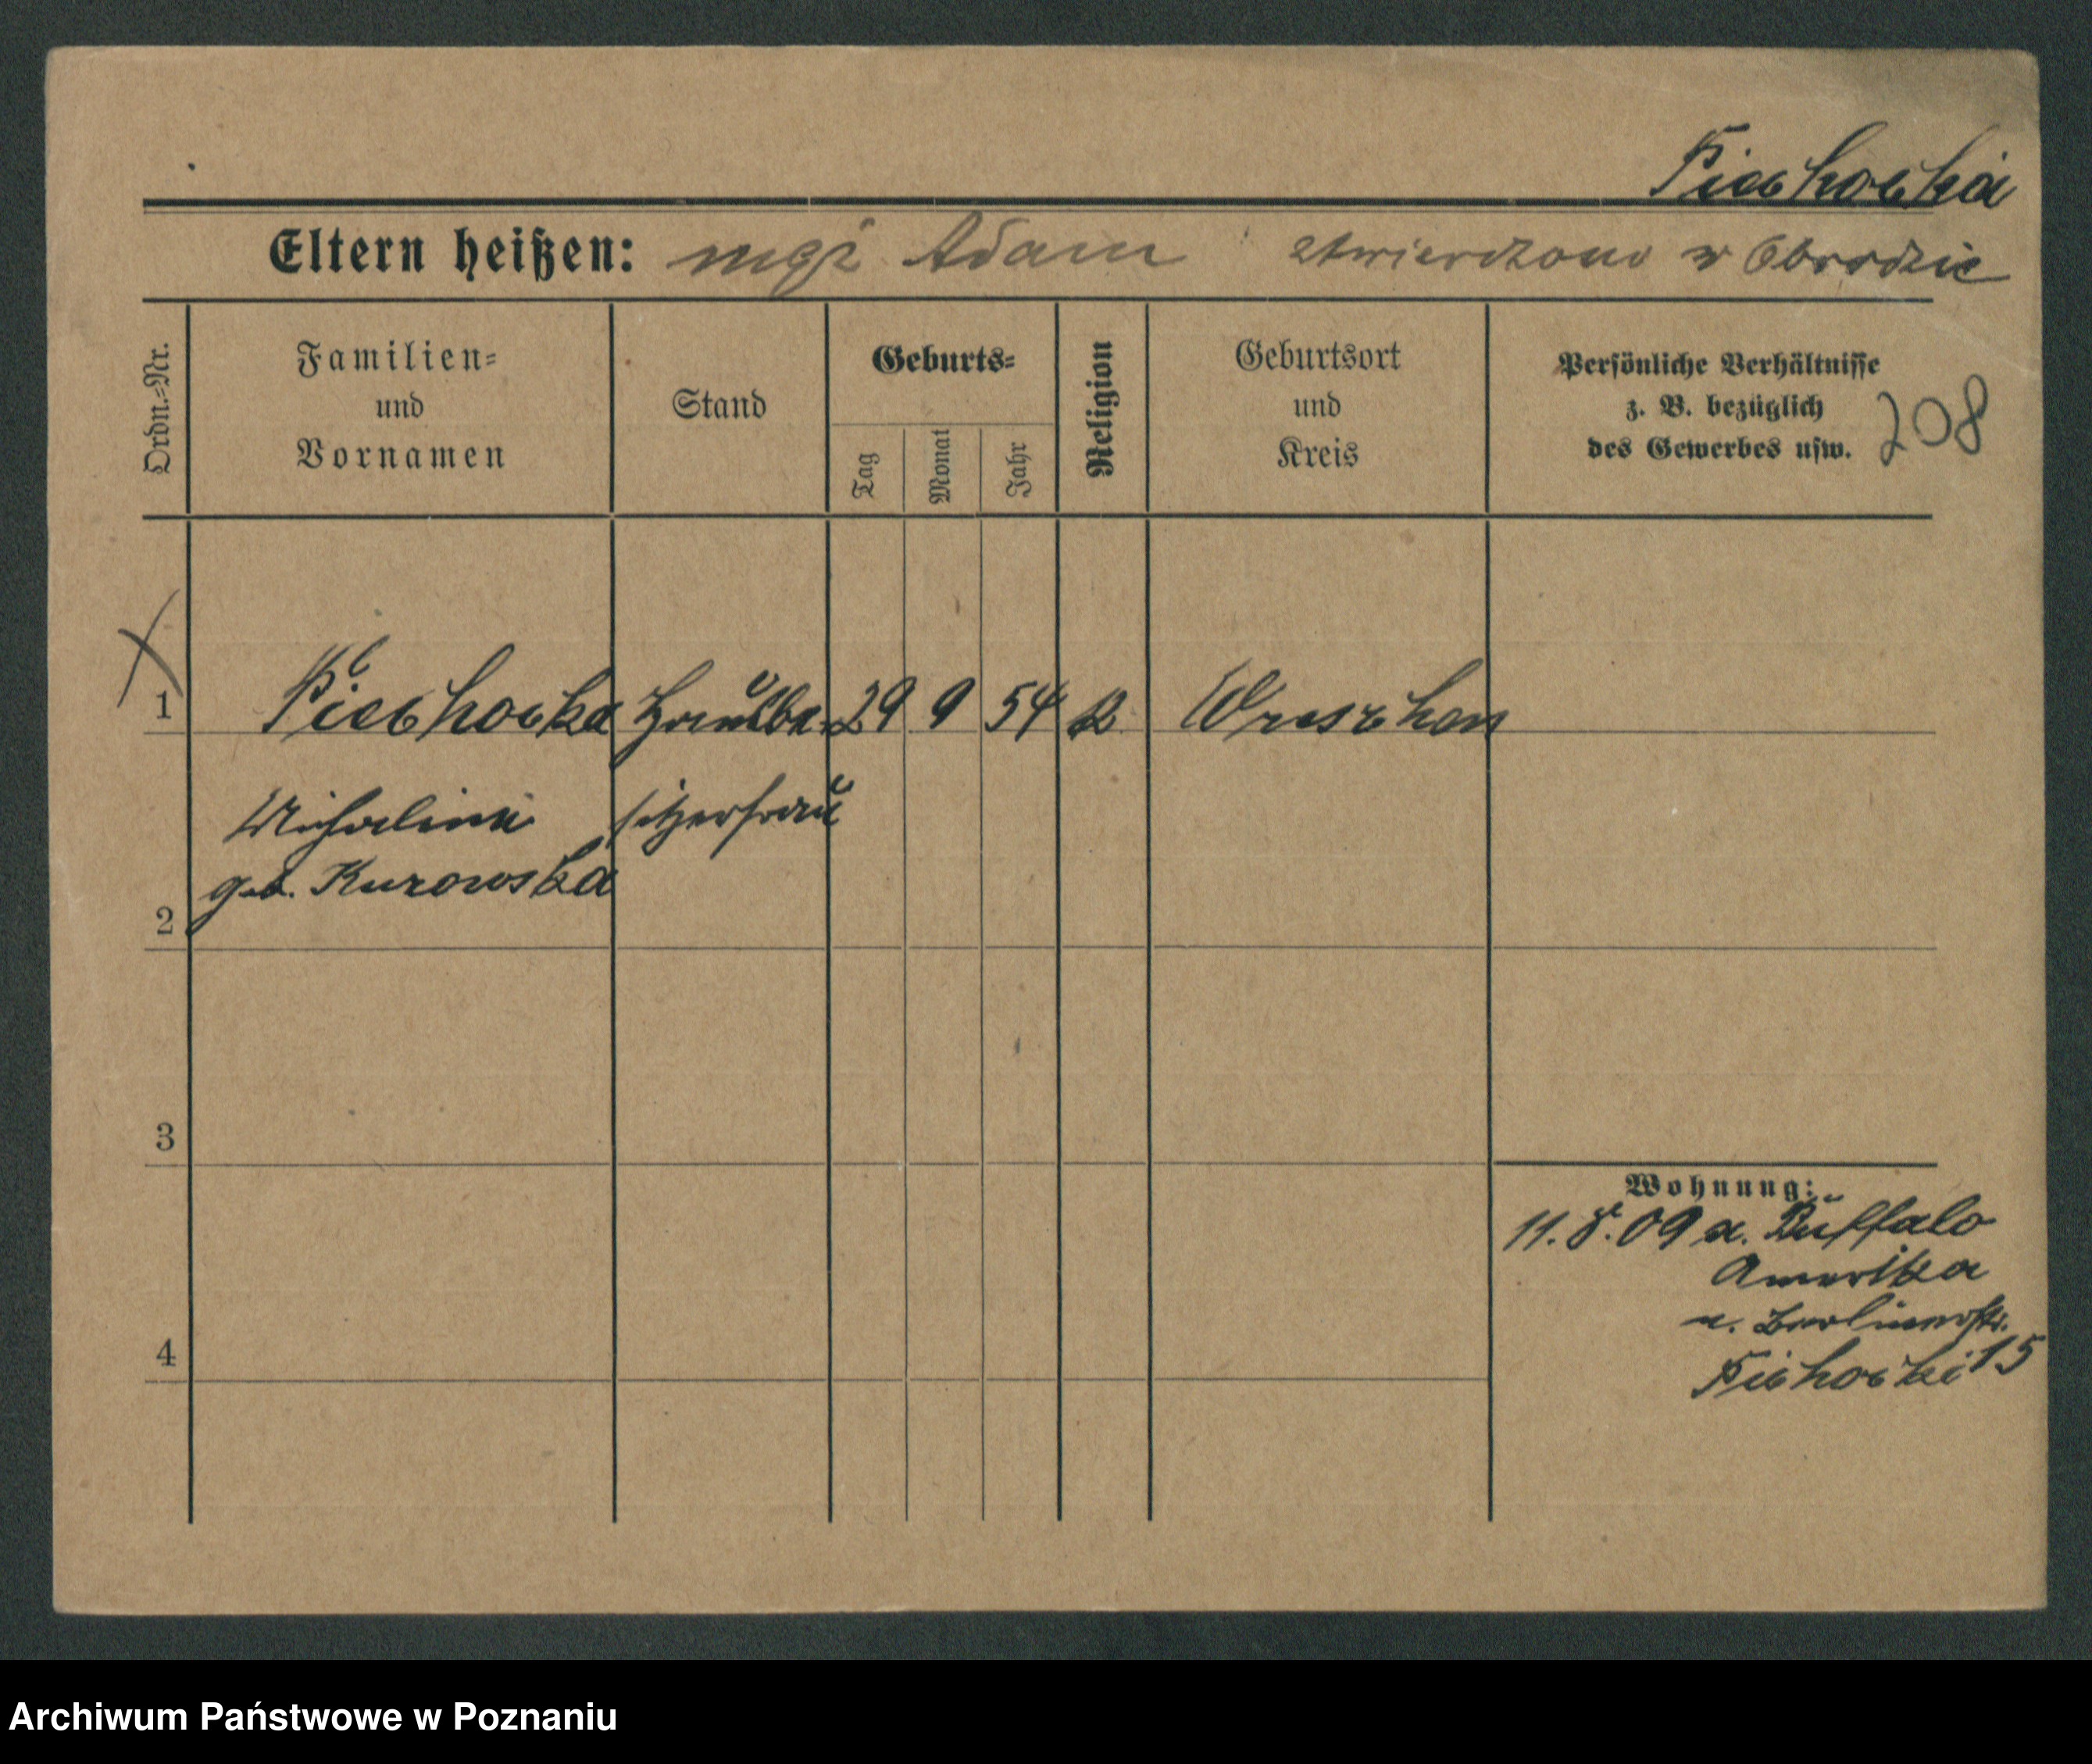 Piechocka
Eltern heißen: mąż Adam stwierdzono w Obrodzie
Ordn.-Nr.
Familien-
und
Vornamen
Stand
Geburts-
Tag
Monat
Jahr
Religion
Geburtsort
und
Kreis
Persönliche Verhältnisse
z. B. bezüglich
des Gewerbes usw.
208
1 Piechocka Hausbe- 29 9 54 k Wreschen
Michalina sitzerfrau
geb. Kurowska
2
3
Wohnung:
11.8.09 a. Buffalo
Amerika
n. Berlinerstr.
4
Piechocki 15
Archiwum Państwowe w Poznaniu